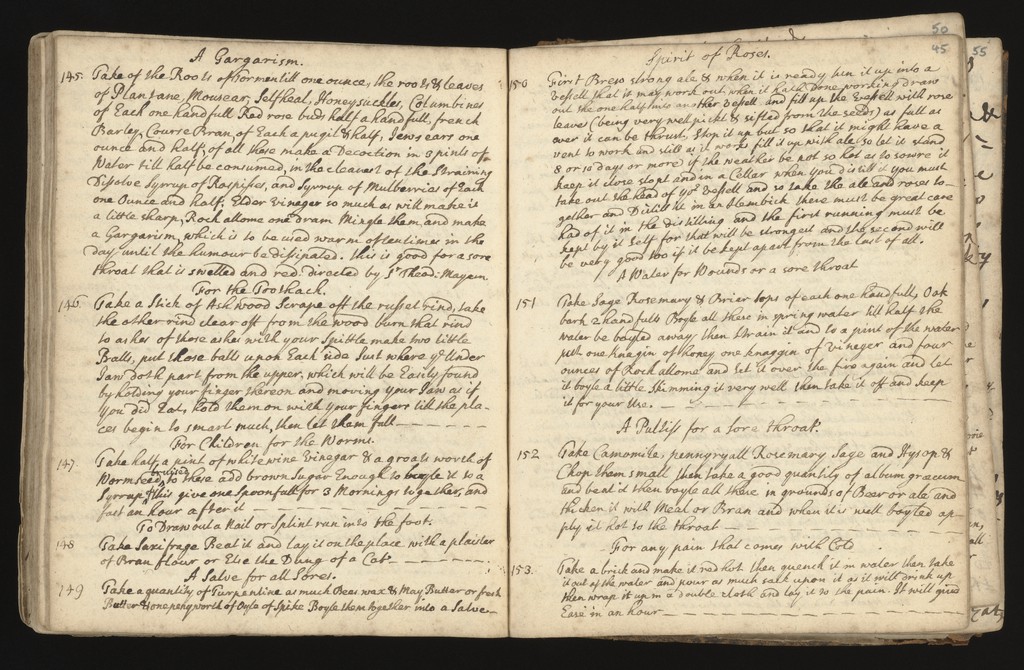 A Gargarism.
145. Take of the Roots of Tormentill one ounce, the roots & leaves
of Plantane, Mousear, Selfheal, Honeysuckles, Columbines
of Each one handfull Red rose buds half a handfull, french
Barley, Course Bran, of Each a pugil & half, Jews ears one
ounce and half, of all these make a Decoction in 3 pints of
Water till half be consumed, in the cleavest of the straining
Dissolve Syrrup of Raspisses, and Syrrup of Mulberries of Each
one Ounce and half, Elder vineger so much as will make it
a little sharp, Rock allome one dram Mingle them and make
a Gargarism, which is to be used warm oftentimes in the
day until the humour be dissipated. this is good for a sore
throat that is swelled and red. directed by Sr. Theod: Mayern.
For the Toothack.
146. Take a Stick of Ash wood Scrape off the russet rind, take
the other rind clear off from the wood burn that rind
to ashes of those ashes with your Spittle make two little
Balls, put those balls upon Each side Just where ye Under
Jaw doth part from the upper, which will be Easily found
by holding your finger thereon and moving your Jaw as if
you did Eat, hold them on with your fingers till the pla-
ces begin to smart much, then let them fall
For Children for the Worms.
147. Take half a pint of white wine Vinegar & a groats worth of
Wormseed bruised to these add brown Sugar Enough to boyle it to a
Syrrup of this give one Spoonfull for 3 Mornings together, and
fast an hour after it
To Draw out a Nail or Splint run into the foot.
148 Take Saxifrage Beat it and lay it on the place with a plaister
of Bran flour or Else the Dung of a Cat.
A Salve for all Sores.
149 Take a quantity of Turpentine as much Bees wax & May Butter or fresh
Butter & one peny worth of Oyle of Spike Boyle them together into a Salve
50
45
55
Spirit of Roses.
150 First Brew strong ale & when it is ready tun it up into a
vessell that it may work out when it hath done working draw
out the one half into another Vessell and fill up the Vessell with rose
leaves (being very well pickt & sifted from the seeds) as full as
ever it can be thrust. Stop it up but so that it might have a
vent to work and still as it works fill it up with ale so let it stand
8 or 10 days or more if the weather be not so hot as to soure it
keep it close stopt and in a Cellar when you distill it you must
take out the head of yor Vessell and so take the ale and roses to-
gether and Distill it in an Alembick there must be great care
had of it in the distilling and the first running must be
kept by it self for that will be strongest and the second will
be very good too if it be kept apart from the last of all.
A Water for Wounds or a sore throat
151 Take Sage Rosemary & Briar tops of each one handfull, Oak
bark 2 handfulls Boyle all these in spring water till half the
water be boyled away then strain it and to a pint of the water
put one knagin of honey one knaggin of Vineger and four
ounces of Rock allome and set it over the fire again and let
it boyle a little, skimming it very well then take it off and keep
it for your Use.
A Pultiss for a Sore throat.
152 Take Camomile, pennyryall Rosemary Sage and Hysop &
Chop them small then take a good quantity of album græcum
and beat it then boyle all these in grounds of Beer or ale and
thicken it with Meal or Bran and when it is well boyled ap-
ply it hot to the throat
For any pain that comes with Cold
153. Take a brick and make it red hot then quench it in water then take
it out of the water and pour as much sack upon it as it will drink up
then wrap it up in a double cloth and lay it to the pain. It will give
Ease in an hour